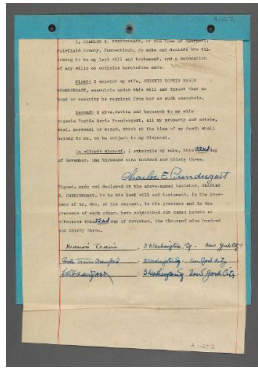 I, CHARLES E. PRENDERGAST, of the Town of Westport,
Fairfield County, Connecticut, do make and declare the fol-
lowing to be my last will and testament, and a revocation
of any wills or codicils heretofore made.
First: I appoint my wife, EUGENIE
PRENDERGAST, executrix under this will and direct that no
bond or security be required from her as such executrix.
Second: I give, devise and bequeath to my wife
Prendergast, all my property and estate,
real, personal or mixed, which at the time of my death shall
belong to me, or be subject to my disposal.
In witness whereof, I subscribe my name, this 22nd day
of November, One thousand nine hundred and thirty three.
Charles E. Prendergast
Signed, made and declared by the above-named testator, CHARLES
E. PRENDERGAST, to be his last will and testament, in the pres-
ence of us, who, at his request, in his presence and in the
presence of each other, have subscribed our names hereto as
witnesses this 22nd day of November, One thousand nine hundred
and thirty three.
Travis 3 Washington Sq. New York City
Travis Crawford 3 Washington Sq. New York City
3 Washington Sq. New York City